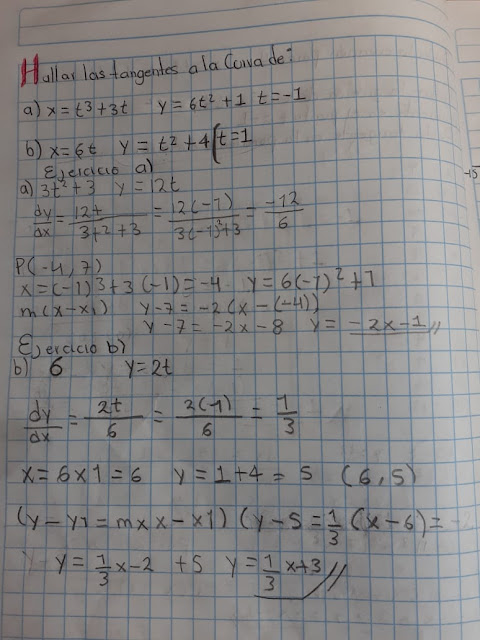 Hallar las tangentes a la Curva de:
a) x = t³ + 3t y = 6t² + 1 t = -1
b) x = 6t y = t² + 4 ( t = 1
Ejercicio a)
a) 3t² + 3 y = 12t
dy/dx = 12t/(3t² + 3) = 12(-1)/(3(-1)² + 3) = -12/6
P(-4, 7)
x = (-1)³ + 3(-1) = -4 y = 6(-1)² + 1
m(x - x1) y - 7 = -2(x - (-4))
y - 7 = -2x - 8 y = -2x - 1 //
Ejercicio b)
b) 6 y = 2t
dy/dx = 2t/6 = 2(1)/6 = 1/3
x = 6 x 1 = 6 y = 1 + 4 = 5 (6, 5)
(y - y1 = m x x - x1) (y - 5 = 1/3 (x - 6) =
y = 1/3 x - 2 + 5 y = 1/3 x + 3 //